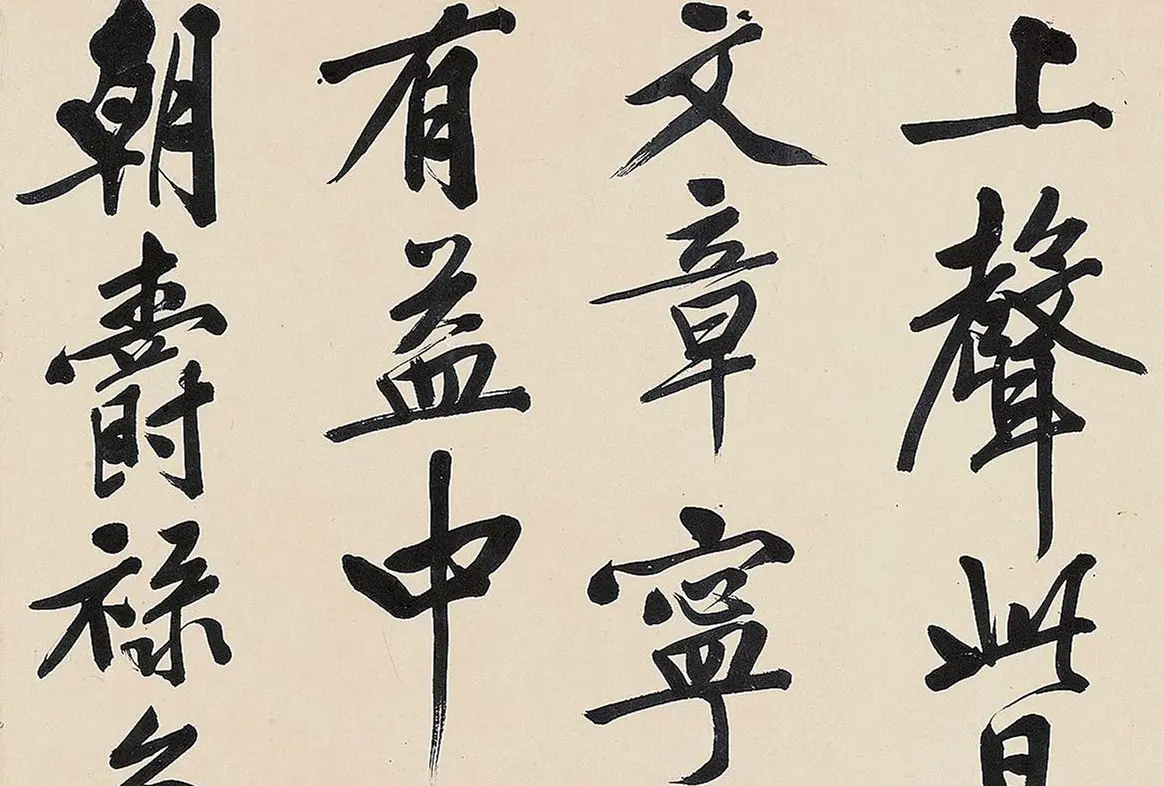 上聲此日
文章寧
有益中
朝爵祿